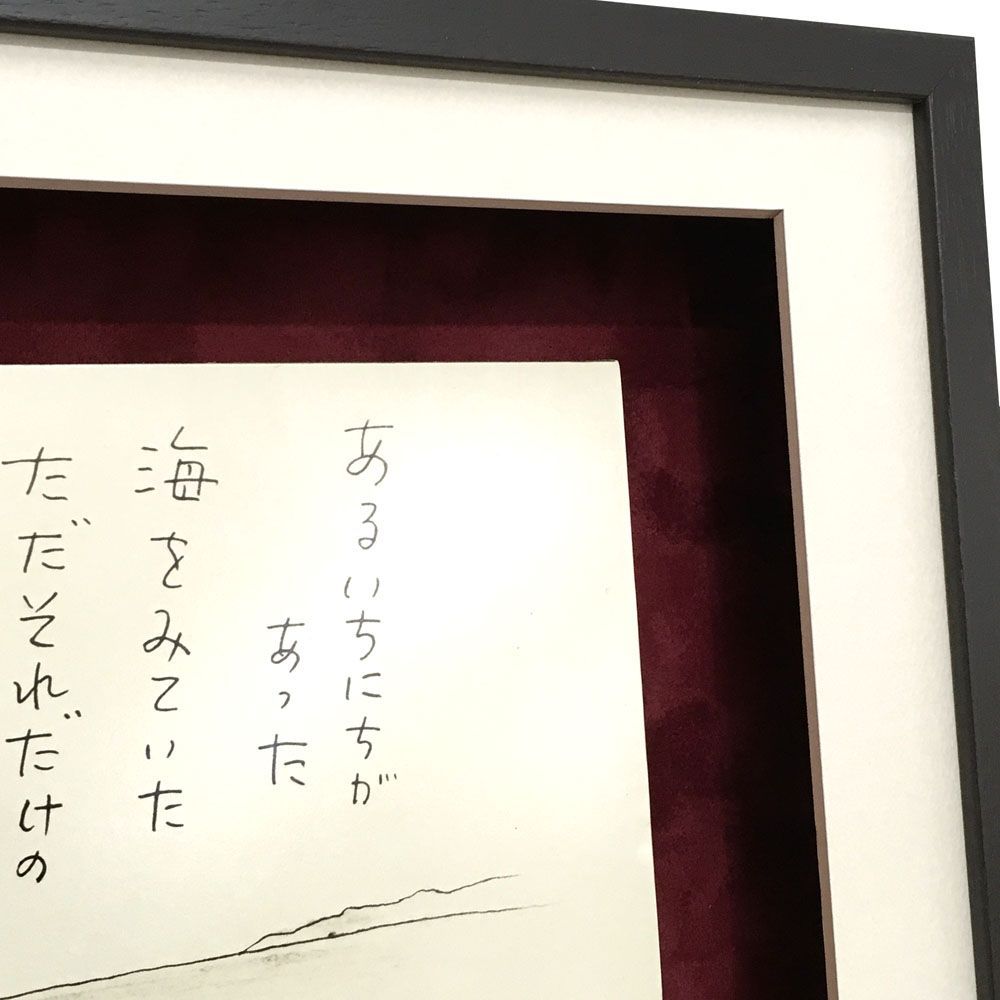 あるいちにちが
あった
海をみていた
ただそれだけの